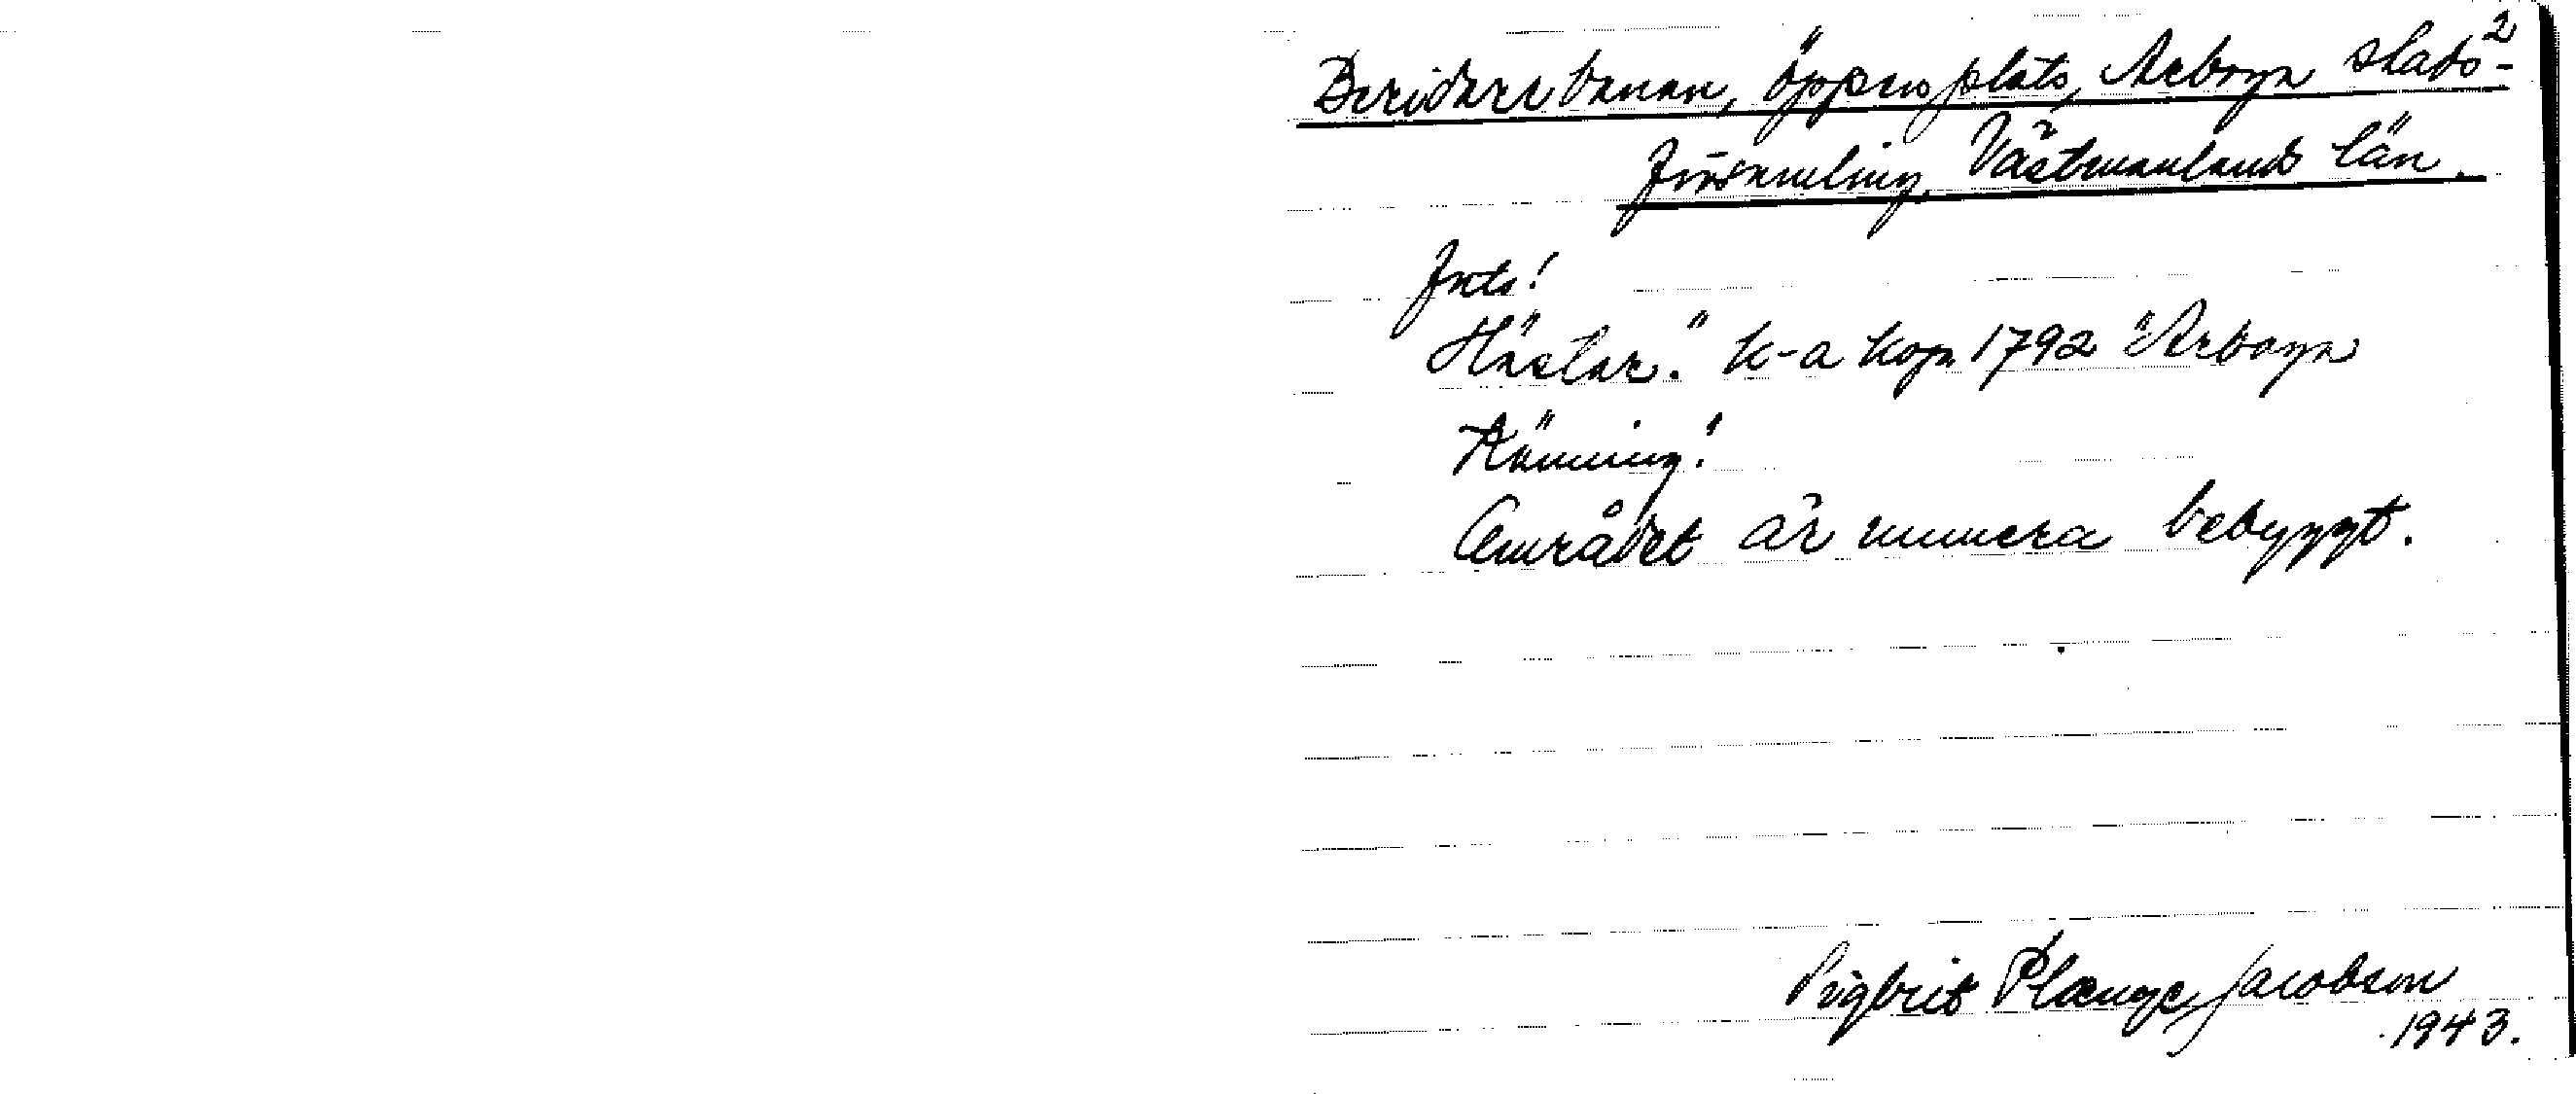 2
Beridarebanan, öppen plats, Arboga stads-
församling, Västmanlands län.
Hästar." k-a kop. 1792 "Arboga
Området är numera bebyggt.
Sigbrit Plænge Jacobson
1943.